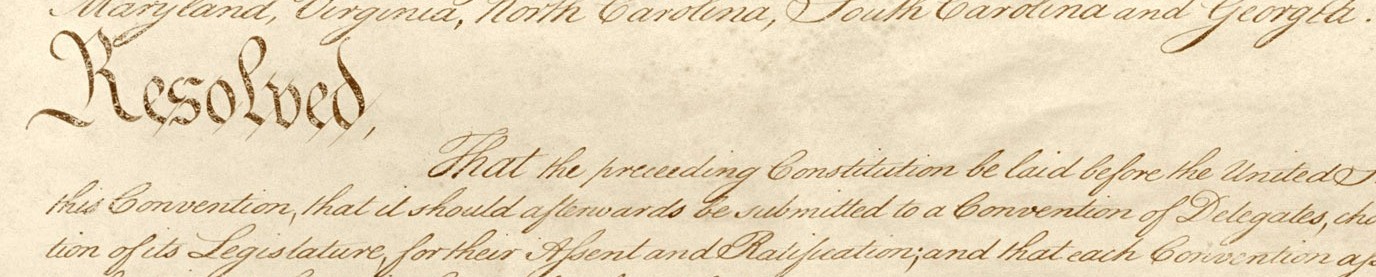 Maryland, Virginia, North Carolina, South Carolina and Georgia.
Resolved,
That the preceeding Constitution be laid before the United S
this Convention, that it should afterwards be submitted to a Convention of Delegates, cho
tion of its Legislature, for their Assent and Ratification; and that each Convention as